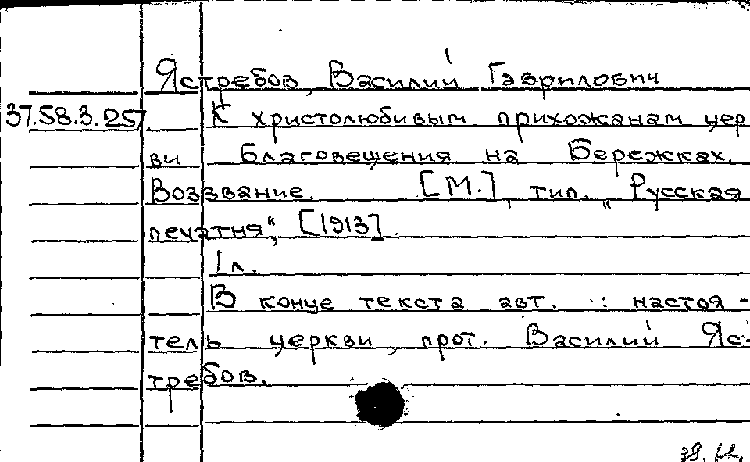 Ястребов, Василий Гаврилович
37.58.3.25 К христолюбивым прихожанам цер
ви Благовещения на Бережках.
Воззвание. [М.], тип. „Русская
печатня“, [1913].
1 л.
В конце текста авт.: настоя-
тель церкви, прот. Василий Яс-
требов.